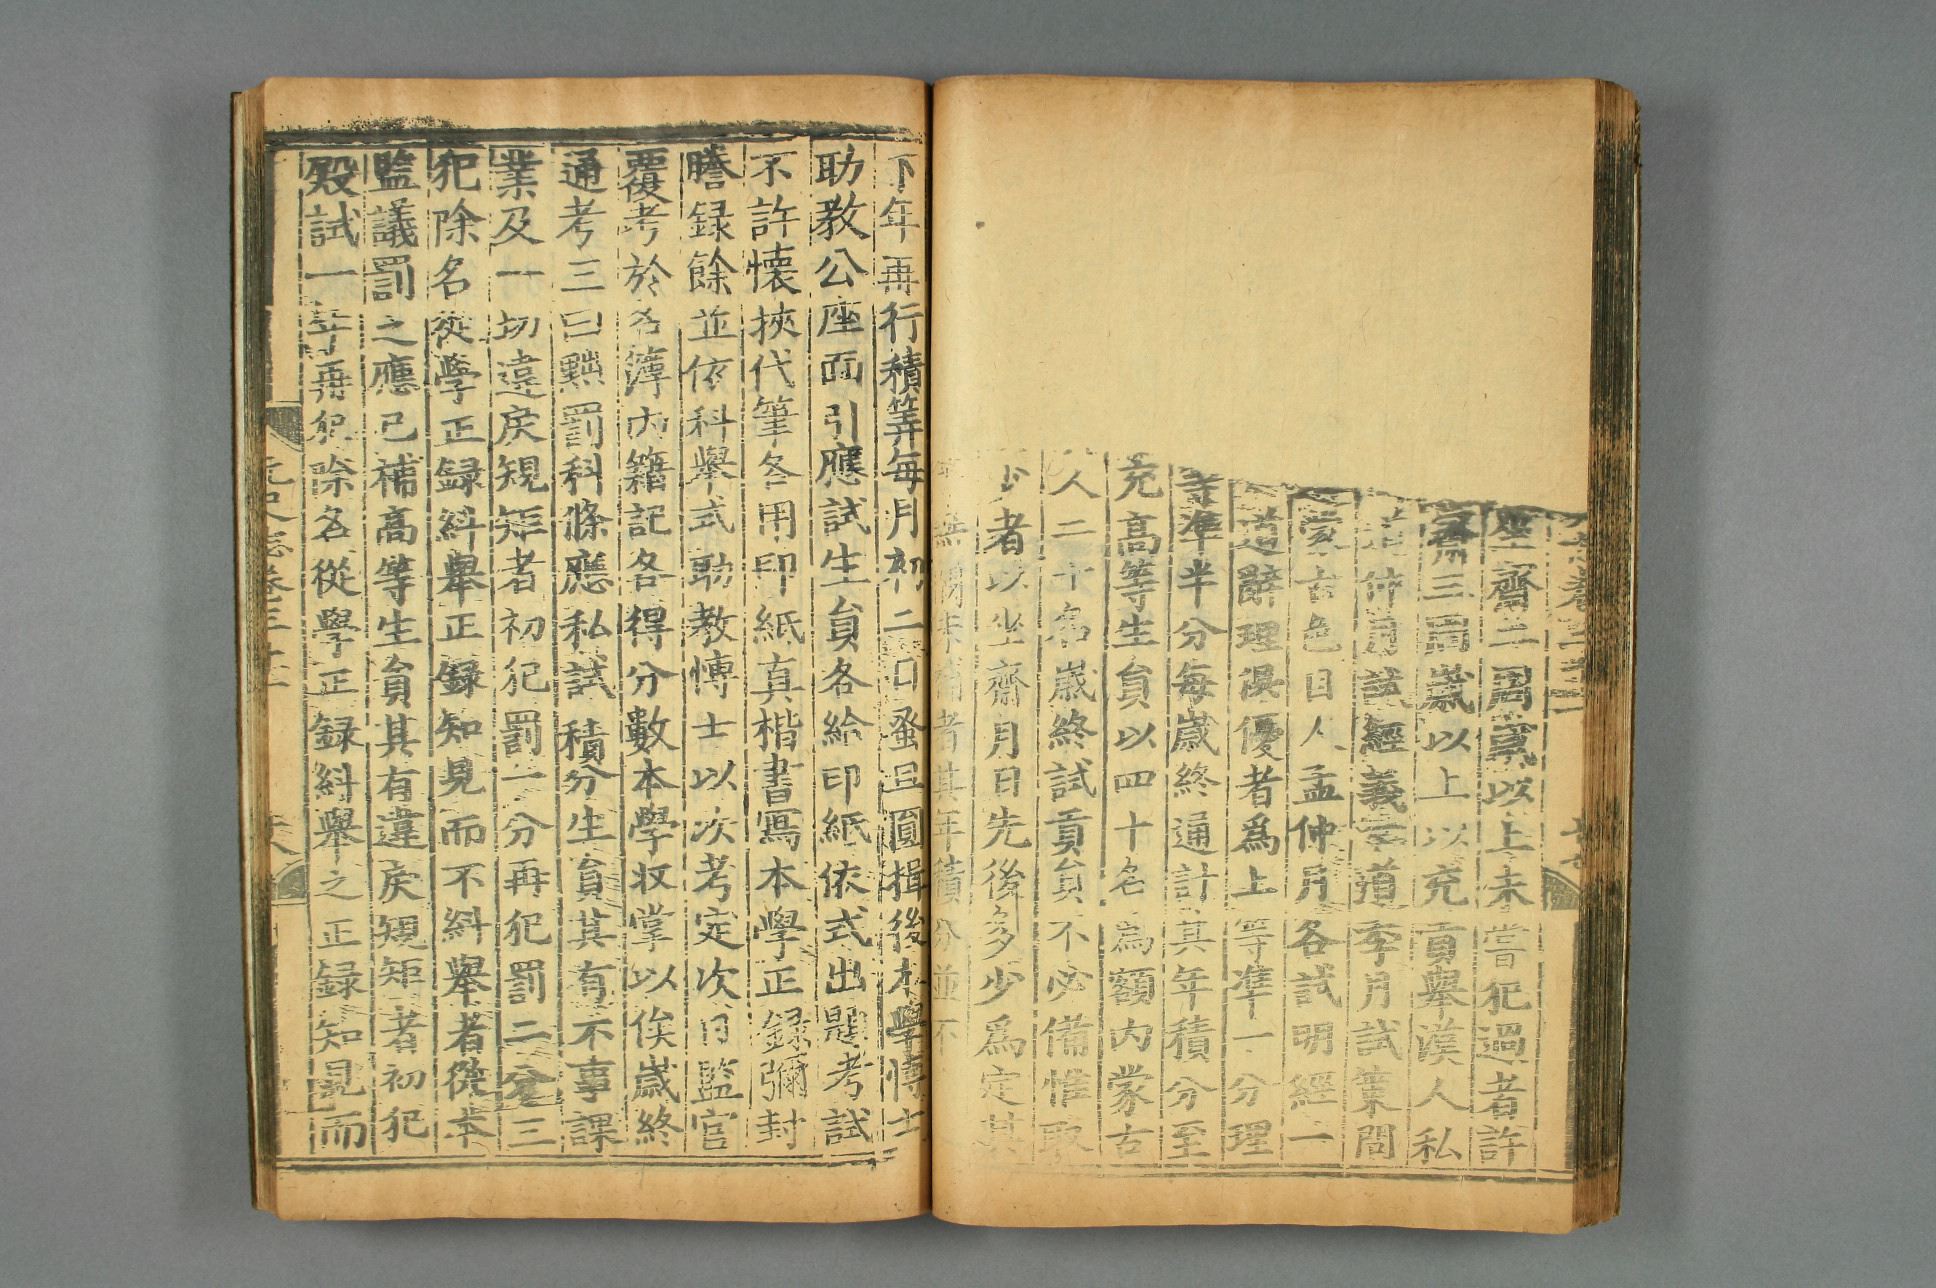 坐齋二周歲以上未嘗犯過者許
齋三周歲以上以充貢舉漢人私
試孟仲月試經義季月試策問
蒙古色目人孟仲月各試明經一
道辭理俱優者爲上等準一分理
等準半分每歲終通計其年積分至
充高等生員以四十名爲額內蒙古
人二十名歲終試貢員不必備惟取
少者以坐齋月日先後多少爲定其
者其年積分並不
下年再行積筭每月初二日蚤旦圓揖後本學博士
助教公座面引應試生員各給印紙依式出題考試
不許懷挾代筆各用印紙真楷書寫本學正錄彌封
謄録餘並依科舉式助教博士以次考定次日監官
覆考於名簿內籍記各得分數本學收掌以俟歲終
通考三曰黜罰科條應私試積分生員其有不事課
業及一切違戾規矩者初犯罰一分再犯罰二分三
犯除名從學正録糾舉正録知見而不糾舉者從本
監議罰之應已補高等生員其有違戾規矩者初犯
殿試一年再犯除名從學正録糾舉之正録知見而
元史志卷三十一